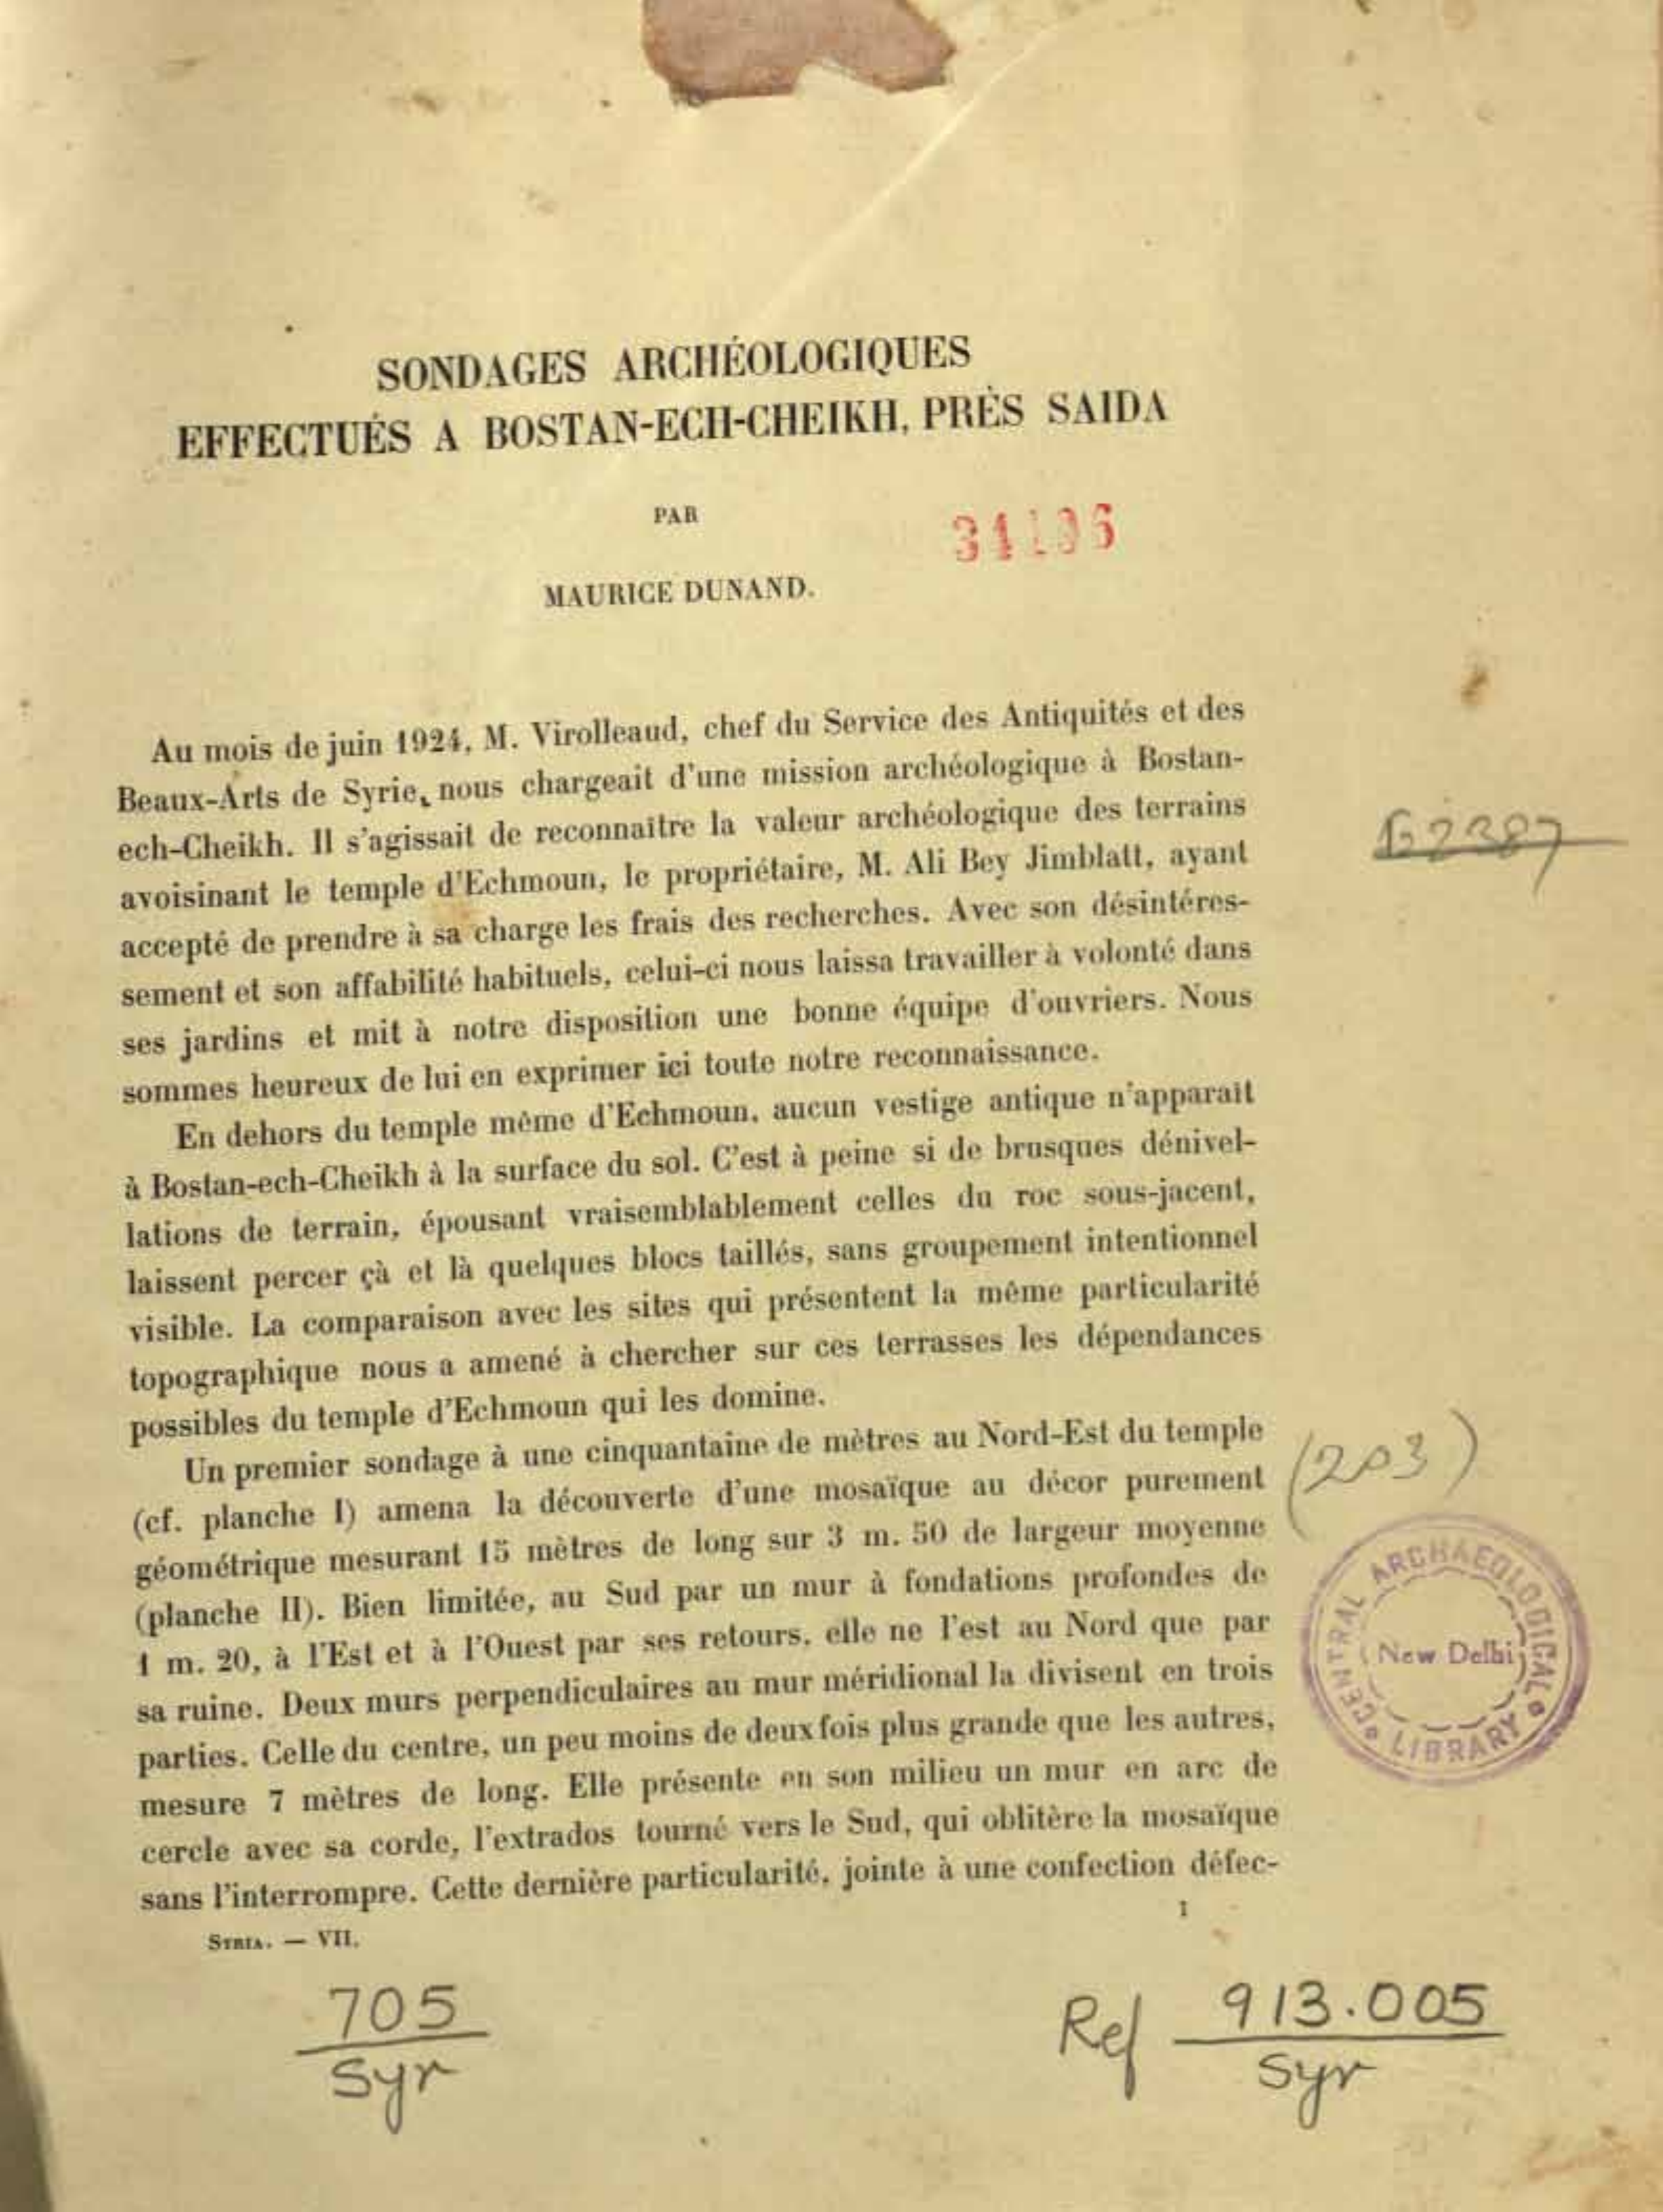 SONDAGES ARCHÉOLOGIQUES
EFFECTUÉS A BOSTAN-ECH-CHEIKH, PRÈS SAIDA
PAR
34196
MAURICE DUNAND.
Au mois de juin 1924, M. Virolleaud, chef du Service des Antiquités et des
Beaux-Arts de Syrie, nous chargeait d'une mission archéologique à Bostan-
ech-Cheikh. Il s'agissait de reconnaître la valeur archéologique des terrains
avoisinant le temple d'Echmoun, le propriétaire, M. Ali Bey Jimblatt, ayant
accepté de prendre à sa charge les frais des recherches. Avec son désintéres-
sement et son affabilité habituels, celui-ci nous laissa travailler à volonté dans
ses jardins et mit à notre disposition une bonne équipe d'ouvriers. Nous
sommes heureux de lui en exprimer ici toute notre reconnaissance.
En dehors du temple même d'Echmoun, aucun vestige antique n'apparaît
à Bostan-ech-Cheikh à la surface du sol. C'est à peine si de brusques dénivel-
lations de terrain, épousant vraisemblablement celles du roc sous-jacent,
laissent percer çà et là quelques blocs taillés, sans groupement intentionnel
visible. La comparaison avec les sites qui présentent la même particularité
topographique nous a amené à chercher sur ces terrasses les dépendances
possibles du temple d'Echmoun qui les domine.
Un premier sondage à une cinquantaine de mètres au Nord-Est du temple
(203)
(cf. planche I) amena la découverte d'une mosaïque au décor purement
géométrique mesurant 15 mètres de long sur 3 m. 50 de largeur moyenne
(planche II). Bien limitée, au Sud par un mur à fondations profondes de
1 m. 20, à l'Est et à l'Ouest par ses retours, elle ne l'est au Nord que par
sa ruine. Deux murs perpendiculaires au mur méridional la divisent en trois
parties. Celle du centre, un peu moins de deux fois plus grande que les autres,
mesure 7 mètres de long. Elle présente en son milieu un mur en arc de
cercle avec sa corde, l'extrados tourné vers le Sud, qui oblitère la mosaïque
sans l'interrompre. Cette dernière particularité, jointe à une confection défec-
CENTRAL ARCHAEOLOGICAL
New Delhi
LIBRARY
SYRIA. — VII.
1
705
Syr
Ref 913.005
Syr